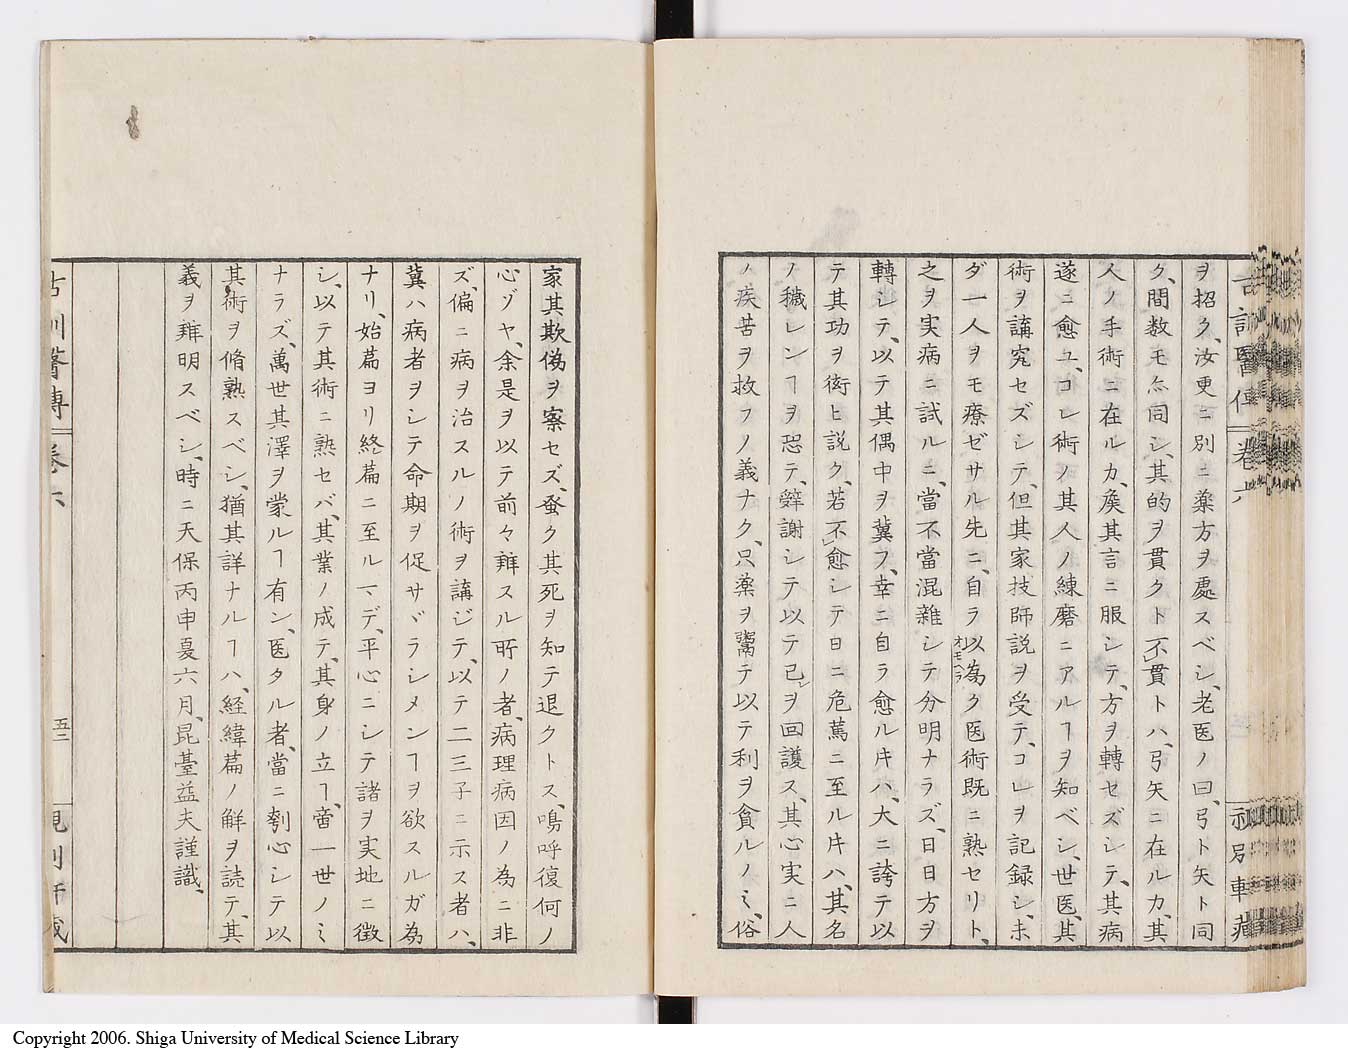 古訓医傳 卷六
ヲ招ク、汝更ニ別ニ薬方ヲ處スベシ、老医ノ曰、弓ト矢ト同
ク、間数モ亦同シ、其的ヲ貫クト不貫トハ、弓矢ニ在ルカ、其
人ノ手術ニ在ルカ、矦其言ニ服シテ、方ヲ轉セズシテ、其病
遂ニ愈ユ、コレ術ノ其人ノ練磨ニアルヿヲ知ベシ、世医、其
術ヲ講究セズシテ、但其家技師説ヲ受テ、コレヲ記録シ、未
ダ一人ヲモ療ゼサル先ニ、自ラ以為ク医術既ニ熟セリト、
オモヘラ
之ヲ実病ニ試ルニ、當不當混雜シテ分明ナラズ、日日方ヲ
轉シテ、以テ其偶中ヲ冀フ、幸ニ自ラ愈ル𪜈ハ、大ニ誇テ以
テ其功ヲ衒ヒ説ク、若不愈シテ日ニ危篤ニ至ル𪜈ハ、其名
ノ穢レンヿヲ恐テ、辤謝シテ以テ已ヲ回護ス、其心実ニ人
ノ疾苦ヲ救フノ義ナク、只薬ヲ鬻テ以テ利ヲ貪ルノミ、俗
家其欺偽ヲ察セズ、蚤ク其死ヲ知テ退クトス、嗚呼復何ノ
心ゾヤ、余是ヲ以テ前々辨スル所ノ者、病理病因ノ為ニ非
ズ、偏ニ病ヲ治スルノ術ヲ講ジテ、以テ二三子ニ示ス者ハ、
冀ハ病者ヲシテ命期ヲ促サヾラシメンヿヲ欲スルガ為
ナリ、始篇ヨリ終篇ニ至ルマデ、平心ニシテ諸ヲ実地ニ徴
シ、以テ其術ニ熟セバ、其業ノ成テ、其身ノ立ヿ、啻一世ノミ
ナラズ、萬世其澤ヲ蒙ルヿ有ン、医タル者、當ニ刳心シテ以
其術ヲ脩熟スベシ、猶其詳ナルヿハ、経緯篇ノ解ヲ読テ、其
義ヲ辨明スベシ、時ニ天保丙申夏六月、昆臺益夫謹識、
古訓醫傳 卷六